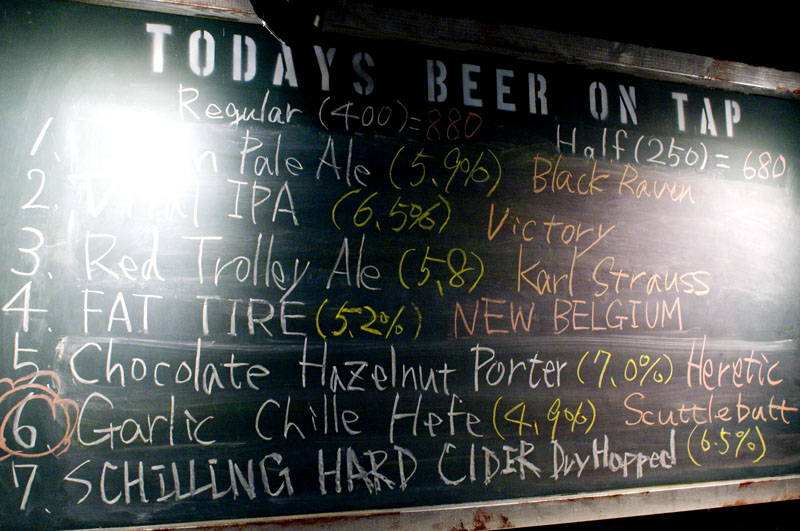 TODAYS BEER ON TAP
Regular (400)=880 Half(250)=680
1. Pale Ale (5.9%) Black Raven
2. IPA (6.5%) Victory
3. Red Trolley Ale (5,8) Karl Strauss
4. FAT TIRE (5.2%) NEW BELGIUM
5. Chocolate Hazelnut Porter (7.0%) Heretic
6. Garlic Chille Hefe (4.9%) Scuttlebutt
7. SCHiLLiNG HARD CIDER Dry Hopped (6.5%)